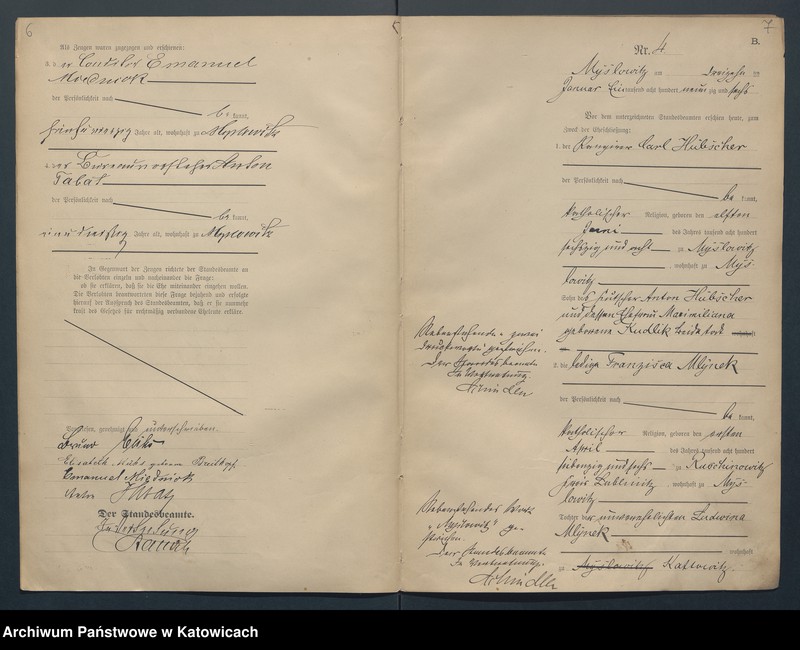 6
Als Zeugen waren zugezogen und erschienen:
3. der Emanuel
Miednick
der Persönlichkeit nach
bekannt,
fünfundvierzig Jahre alt, wohnhaft zu Myslowitz
4. der Bureauvorsteher Anton
der Persönlichkeit nach
bekannt,
Jahre alt, wohnhaft zu Myslowitz
In Gegenwart der Zeugen richtete der Standesbeamte an
die Verlobten einzeln und nacheinander die Frage:
ob sie erklären, daß sie die Ehe miteinander eingehen wollen.
Die Verlobten beantworteten diese Frage bejahend und erfolgte
hierauf der Ausspruch des Standesbeamten, daß er sie nunmehr
kraft des Gesetzes für rechtmäßig verbundene Eheleute erkläre.
Vorgelesen, genehmigt und unterschrieben.
Bruno
Elisabeth geborene
Emanuel Miednick
Anton
Der Standesbeamte.
In Vertretung
7
B.
Nr. 4
Myslowitz am dreizehn ten
Januar Eintausend acht hundert neunzig und sechs
Vor dem unterzeichneten Standesbeamten erschien heute, zum
Zweck der Eheschließung:
1. der Rangirer Carl Hübscher
der Persönlichkeit nach
bekannt,
katholischer Religion, geboren den elften
Juni des Jahres tausend acht hundert
sechszig und acht zu Myslowitz
, wohnhaft zu Mys-
lowitz
Sohn des Anton Hübscher
und dessen Ehefrau Maximiliana
geborene Kudlik beide todt wohnhaft
2. die ledige Franzisca Mlynek
der Persönlichkeit nach
bekannt,
katholischer Religion, geboren den ersten
April des Jahres tausend acht hundert
siebenzig und sechs zu Ruschinowitz
Kreis Lublinitz, wohnhaft zu Mys-
lowitz
Tochter der unverehelichten Ludwina
Mlynek
wohnhaft
zu Myslowitz Kattowitz.
Nebenstehende zwei
Druckworte gestrichen.
Der Standesbeamte
In Vertretung.
Schindler
Nebenstehendes Wort
„Myslowitz" ge-
strichen.
Der Standesbeamte
In Vertretung.
Schindler
Archiwum Państwowe w Katowicach